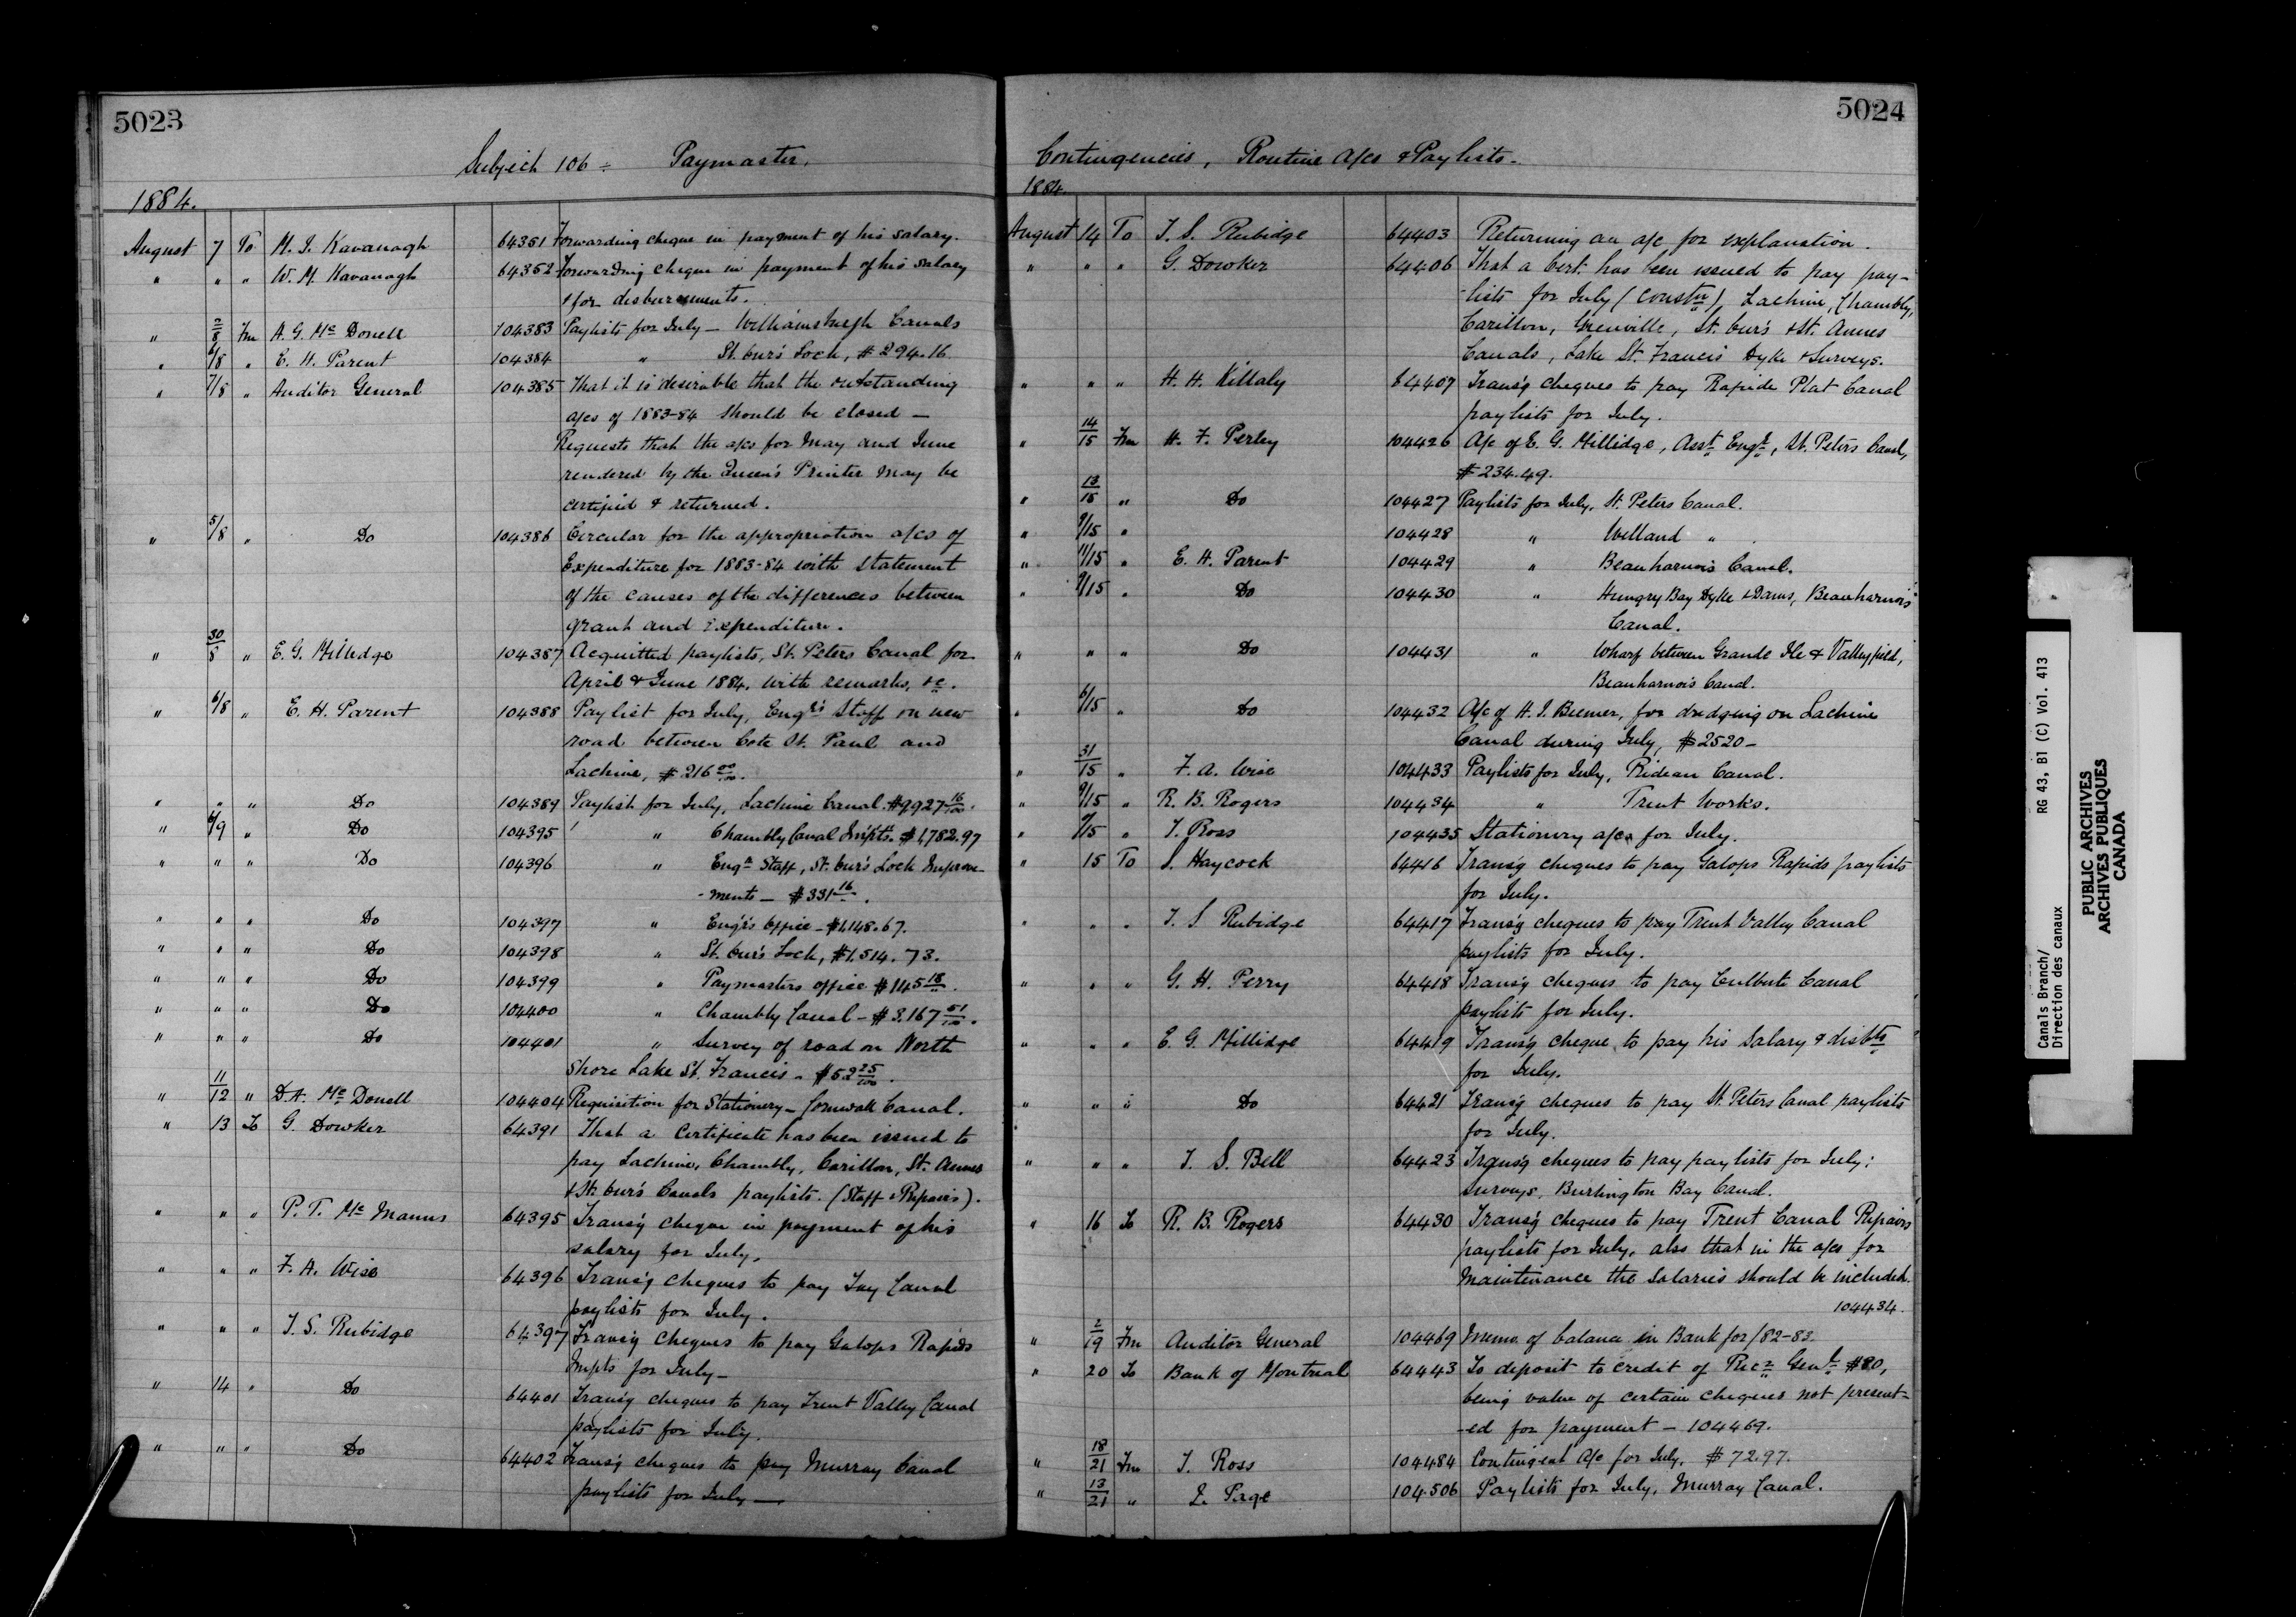 5023
Subject 106 ÷ Paymaster.
1884.
August 7 To M. J. Kavanagh 64351 Forwarding cheque in payment of his salary.
" " " W. M. Kavanagh 64352 Forwarding cheque in payment of his salary
& for disbursements.
" 2/8 Fm A. G. Mc Donell 104383 Paylists for July — Williamsburgh Canals
" 6/8 " E. H. Parent 104384 " St. Our's Lock, $294.16.
" 7/8 " Auditor General 104385 That it is desirable that the outstanding
a/cs of 1883-84 should be closed —
Requests that the a/cs for May and June
rendered by the Queen's Printer may be
certified & returned.
" 5/8 " Do 104386 Circular for the appropriation a/cs of
Expenditure for 1883-84 with statement
of the causes of the differences between
grant and Expenditure.
" 30/8 " E. G. Millidge 104387 Acquitted paylists, St. Peters Canal for
April & June 1884. with remarks, &c.
" 6/8 " E. H. Parent 104388 Paylist for July, Engr's Staff on new
road between Cote St. Paul and
Lachine, $216 00/100.
" " " Do 104389 Paylist for July, Lachine Canal. $9927 16/100.
" 6/9 " Do 104395 " Chambly Canal Imp'ts. $1,782.97
" " " Do 104396 " Engr Staff, St. Our's Lock Improve-
-ments — $331 16/".
" " " Do 104397 " Engr's Office — $1,148.67.
" " " Do 104398 " St. Our's Lock, $1,514.73.
" " " Do 104399 " Paymasters office $145 18/".
" " " Do 104400 " Chambly Canal — $3,167 51/100.
" " " Do 104401 " Survey of road on North
Shore Lake St. Francis — $52 25/100.
" 11/12 " D. A. Mc Donell 104404 Requisition for Stationery — Cornwall Canal.
" 13 To G. Dowker 64391 That a Certificate has been issued to
pay Lachine, Chambly, Carillon, St. Annes
& St. Our's Canals paylists. (Staff & Repairs).
" " " P. T. Mc Manus 64395 Trans'g cheque in payment of his
salary for July.
" " " F. A. Wise 64396 Trans'g cheques to pay Tay Canal
paylists for July.
" " " T. S. Rubidge 64397 Trans'g cheques to pay Galops Rapids
Impts for July —
" 14 " Do 64401 Trans'g cheques to pay Trent Valley Canal
paylists for July.
" " " Do 64402 Trans'g cheques to pay Murray Canal
paylists for July —
5024
Contingencies, Routine A/cs & Paylists.
1884
August 14 To T. S. Rubidge 64403 Returning an a/c for explanation.
" " " G. Dowker 64406 That a Cert. has been issued to pay pay-
-lists for July (Constn), Lachine, Chambly,
Carillon, Grenville, St. Our's & St. Annes
Canals, Lake St. Francis Dyke & Surveys.
" " " H. H. Killaly 64407 Trans'g cheques to pay Rapide Plat Canal
paylists for July.
" 14/15 Fm H. F. Perley 104426 A/c of E. G. Millidge, Asst Engr, St. Peters Canal,
$234.49.
" 13/15 " Do 104427 Paylists for July. St. Peters Canal.
" 9/15 " 104428 " Welland " .
" 11/15 " E. H. Parent 104429 " Beauharnois Canal.
" 9/15 " Do 104430 " Hungry Bay Dyke & Dams, Beauharnois
Canal.
" " " Do 104431 " Wharf between Grande Ile & Valleyfield,
Beauharnois Canal.
" 6/15 " Do 104432 A/c of H. J. Beemer, for dredging on Lachine
Canal during July, $2520 —
" 31/15 " F. A. Wise 104433 Paylists for July, Rideau Canal.
" 9/15 " R. B. Rogers 104434 " Trent Works.
" 9/15 " T. Ross 104435 Stationery a/cs for July.
" 15 To S. Haycock 64416 Trans'g cheques to pay Galops Rapids paylists
for July.
" " " T. S. Rubidge 64417 Trans'g cheques to pay Trent Valley Canal
paylists for July.
" " " G. H. Perry 64418 Trans'g cheques to pay Culbute Canal
paylists for July.
" " " E. G. Millidge 64419 Trans'g cheque to pay his Salary & disbts
for July.
" " " Do 64421 Trans'g cheques to pay St. Peters Canal paylists
for July.
" " " T. S. Bell 64423 Trans'g cheques to pay paylists for July;
Surveys, Burlington Bay Canal.
" 16 To R. B. Rogers 64430 Trans'g cheques to pay Trent Canal Repairs
paylists for July, also that in the a/cs for
Maintenance the Salaries should be included.
104434.
" 2/19 Fm Auditor General 104469 Memo of balance in Bank for /82-83
" 20 To Bank of Montreal 64443 To deposit to credit of Recr Genl $80,
being value of certain cheques not present-
-ed for payment — 104469.
" 18/21 Fm T. Ross 104484 Contingent A/c for July. $72.97.
" 13/21 " J. Page 104506 Paylists for July, Murray Canal.
Canals Branch/ RG 43, B1 (C) Vol. 413
Direction des canaux
PUBLIC ARCHIVES
ARCHIVES PUBLIQUES
CANADA